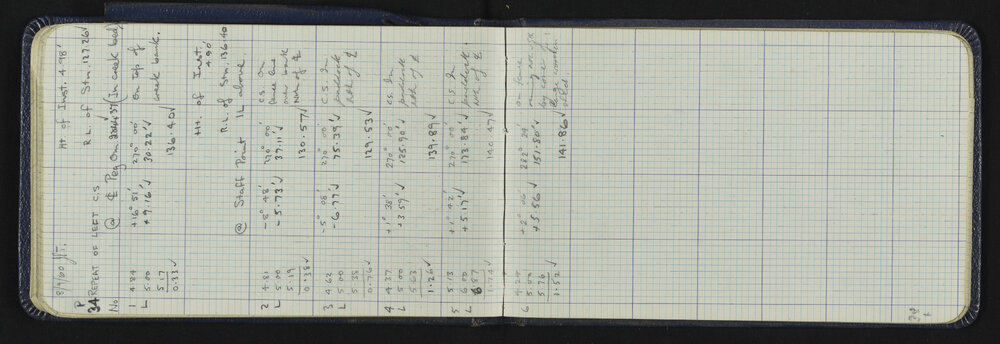 8/9/60
P
34 REPEAT OF LEFT C.S
Ht of Inst. 4.98'
R.L. of Stn. 127.26 ✓
No @ ¢ Peg Om (In creek bed)
1 4.84 +16° 51' 270° 00' on top of
L 5.00 +9.16' ✓ 30.22' ✓ creek bank.
5.17
0.33 ✓ 136.40 ✓
Ht. of Inst.
4.90'
R.L. of Stn. 136.40
@ Staff Point 1L above
2 4.81 -8° 48' 270° 00' C.S. on
L 5.00 -5.73' ✓ 37.11' ✓ fence line
5.19 over bank
0.38 ✓ 130.57 ✓ Nth of ¢
3 4.62 -5° 08' 270° 00' C.S. In
L 5.00 -6.77' ✓ 75.39' ✓ paddock
5.38 Nth of ¢
0.76 ✓ 129.53 ✓
4 4.37 +1° 38' 270° 00' C.S. In
L 5.00 +3.59' ✓ 125.90' ✓ paddock
5.63 Nth of ¢
1.26 ✓ 139.89 ✓
5 5.13 +1° 42' 270° 00' C.S. In
L 6.00 +5.17' ✓ 173.84' ✓ paddock
6.87 Nth of ¢
1.74 ✓ 140.47 ✓
6 4.24 +2° 06' 282° 29' on fence
5.00 +5.56' ✓ 151.80' ✓
5.76 by corner of
1.52 ✓ 141.86 ✓ large wooden
shed